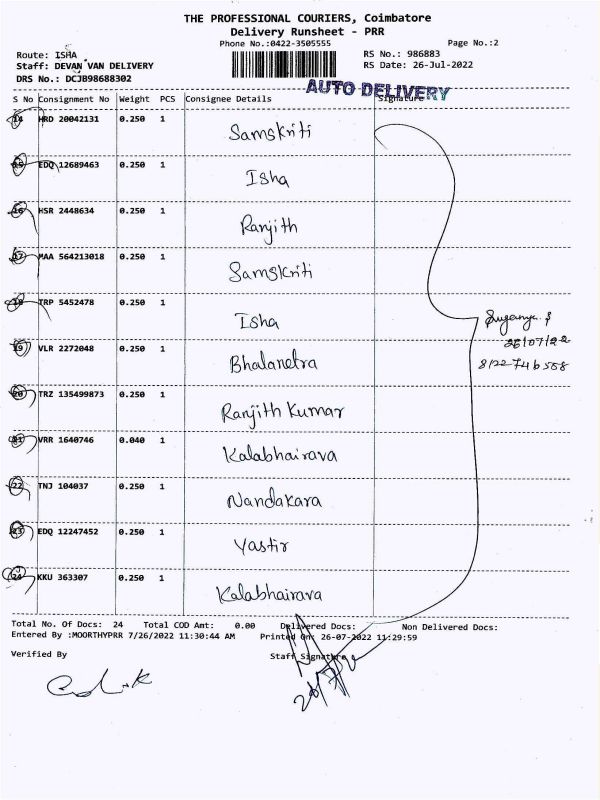 THE PROFESSIONAL COURIERS, Coimbatore
Delivery Runsheet - PRR
Phone No.:0422-3505555 Page No.:2
Route: ISHA RS No.: 986883
Staff: DEVAN VAN DELIVERY RS Date: 26-Jul-2022
DRS No.: DCJB98688302
AUTO DELIVERY
S No Consignment No Weight PCS Consignee Details Signature
14 HRD 20042131 0.250 1 Samskriti
15 EDQ 12689463 0.250 1 Isha
16 HSR 2448634 0.250 1 Ranjith
17 MAA 564213018 0.250 1 Samskriti
18 TRP 5452478 0.250 1 Isha
26/07/22
19 VLR 2272048 0.250 1 Bhalanetra
20 TRZ 135499873 0.250 1 Ranjith Kumar
21 VRR 1640746 0.040 1 Kalabhairava
22 TNJ 104037 0.250 1 Nandakara
23 EDQ 12247452 0.250 1 Yastir
24 KKU 363307 0.250 1 Kalabhairava
Total No. Of Docs: 24 Total COD Amt: 0.00 Delivered Docs: Non Delivered Docs:
Entered By :MOORTHYPRR 7/26/2022 11:30:44 AM Printed On: 26-07-2022 11:29:59
Verified By Staff Signature